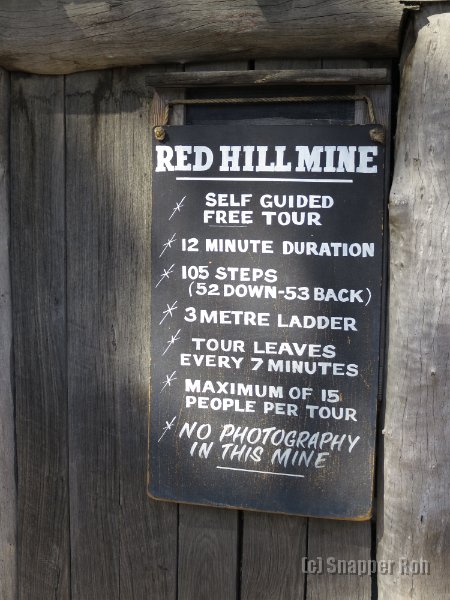 RED HILL MINE
SELF GUIDED
FREE TOUR
12 MINUTE DURATION
105 STEPS
(52 DOWN-53 BACK)
3 METRE LADDER
TOUR LEAVES
EVERY 7 MINUTES
MAXIMUM OF 15
PEOPLE PER TOUR
NO PHOTOGRAPHY
IN THIS MINE
(c) Snapper Roh